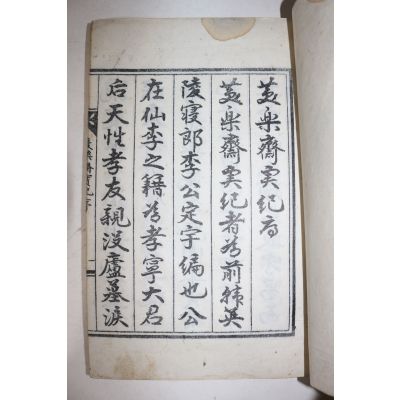 美樂齋實紀序
美樂齋實紀者爲前韓英
陵寢郎李公定宇編也公
在仙李之籍爲孝寧大君
后天性孝友親沒廬墓淚